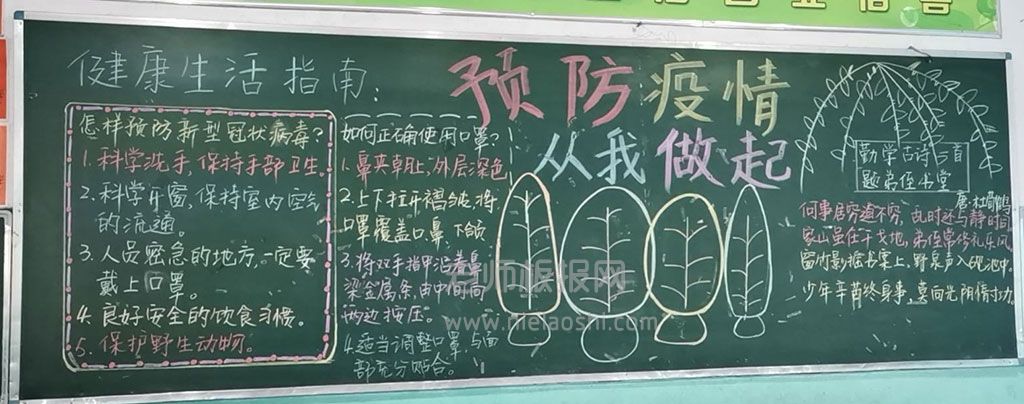 健康生活指南:
怎样预防新型冠状病毒?
1.科学洗手,保持手部卫生。
2.科学开窗,保持室内空气
的流通。
3.人员密急的地方,一定要
戴上口罩。
4.良好安全的饮食习惯。
5.保护野生动物。
如何正确使用口罩?
1.鼻夹朝上,外层深色
2.上下拉开褶皱,将
口罩覆盖口鼻下颌
3.将双手指甲沿着鼻
梁金属条,由中间向
两边按压。
4.适当调整口罩,与面
部充分贴合。
预防疫情
从我做起
勤学古诗
题弟侄书堂
唐·杜荀鹤
何事居穷道不穷,乱时还与静时同
家山虽在干戈地,弟侄常修礼乐风
窗竹影摇书案上,野泉声入砚池中。
少年辛苦终身事,莫向光阴惰寸功。
名师板报网
www.mietaoshi.com